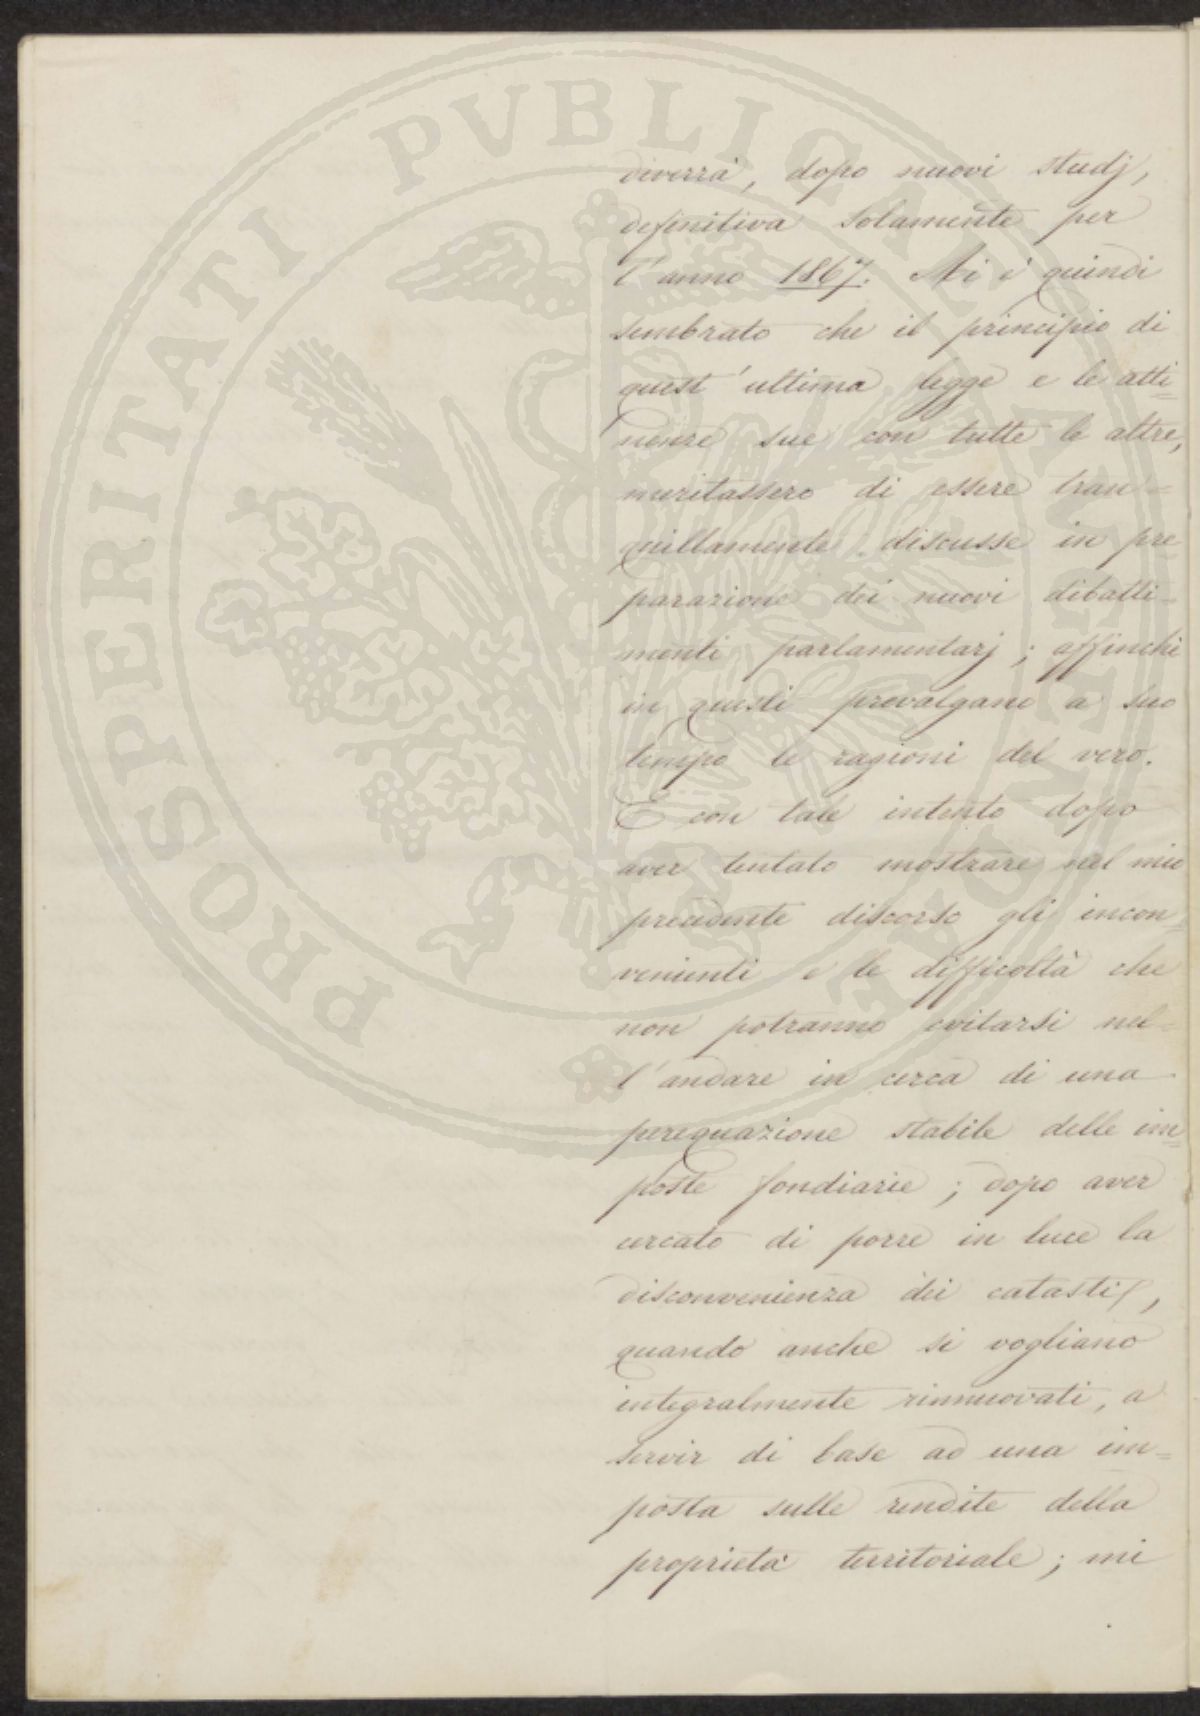 diverrà, dopo nuovi studj,
definitiva solamente per
l'anno 1867. Mi è quindi
sembrato che il principio di
quest'ultima legge e le atti=
nenze sue con tutte le altre,
meritassero di essere tran=
quillamente discusse in pre
parazione dei nuovi dibatti=
menti parlamentarj; affinché
in questi prevalgano a suo
tempo le ragioni del vero.
E con tale intento dopo
aver tentato mostrare nel mio
precedente discorso gli incon=
venienti e le difficoltà che
non potranno evitarsi nel=
l'andare in cerca di una
perequazione stabile delle im=
poste fondiarie; dopo aver
cercato di porre in luce la
disconvenienza dei catasti,
quando anche si vogliano
integralmente rinnuovati, a
servir di base ad una im=
posta sulle rendite della
proprietà territoriale; mi
PROSPERITATI PVBLICAE